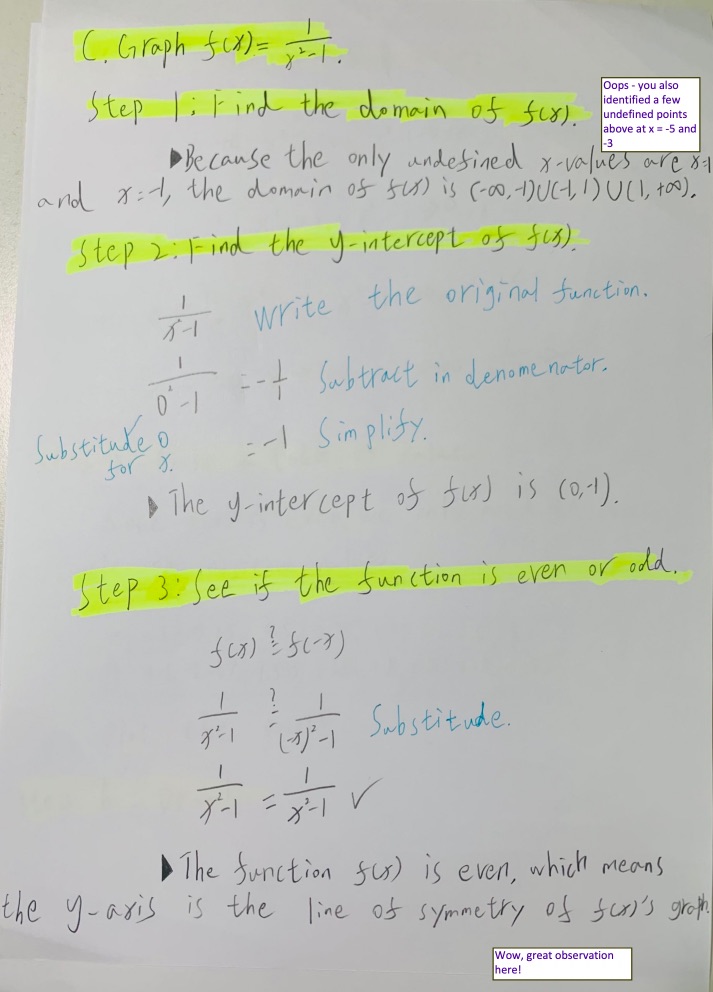 C. Graph f(x) = 1/(x²-1).
Step 1: Find the domain of f(x).
Oops - you also
identified a few
undefined points
above at x = -5 and
-3
▶Because the only undefined x-values are x=1
and x=-1, the domain of f(x) is (-∞,-1)∪(-1,1)∪(1,+∞).
Step 2: Find the y-intercept of f(x).
1/(x²-1) Write the original function.
1/(0²-1) = -1/1 Subtract in denomenator.
Substitude 0
for x.
=-1 Simplify.
▶ The y-intercept of f(x) is (0,-1).
Step 3: See if the function is even or odd.
f(x) ≟ f(-x)
1/(x²-1) ≟ 1/((-x)²-1) Substitude.
1/(x²-1) = 1/(x²-1) ✓
▶ The function f(x) is even, which means
the y-axis is the line of symmetry of f(x)'s graph.
Wow, great observation
here!